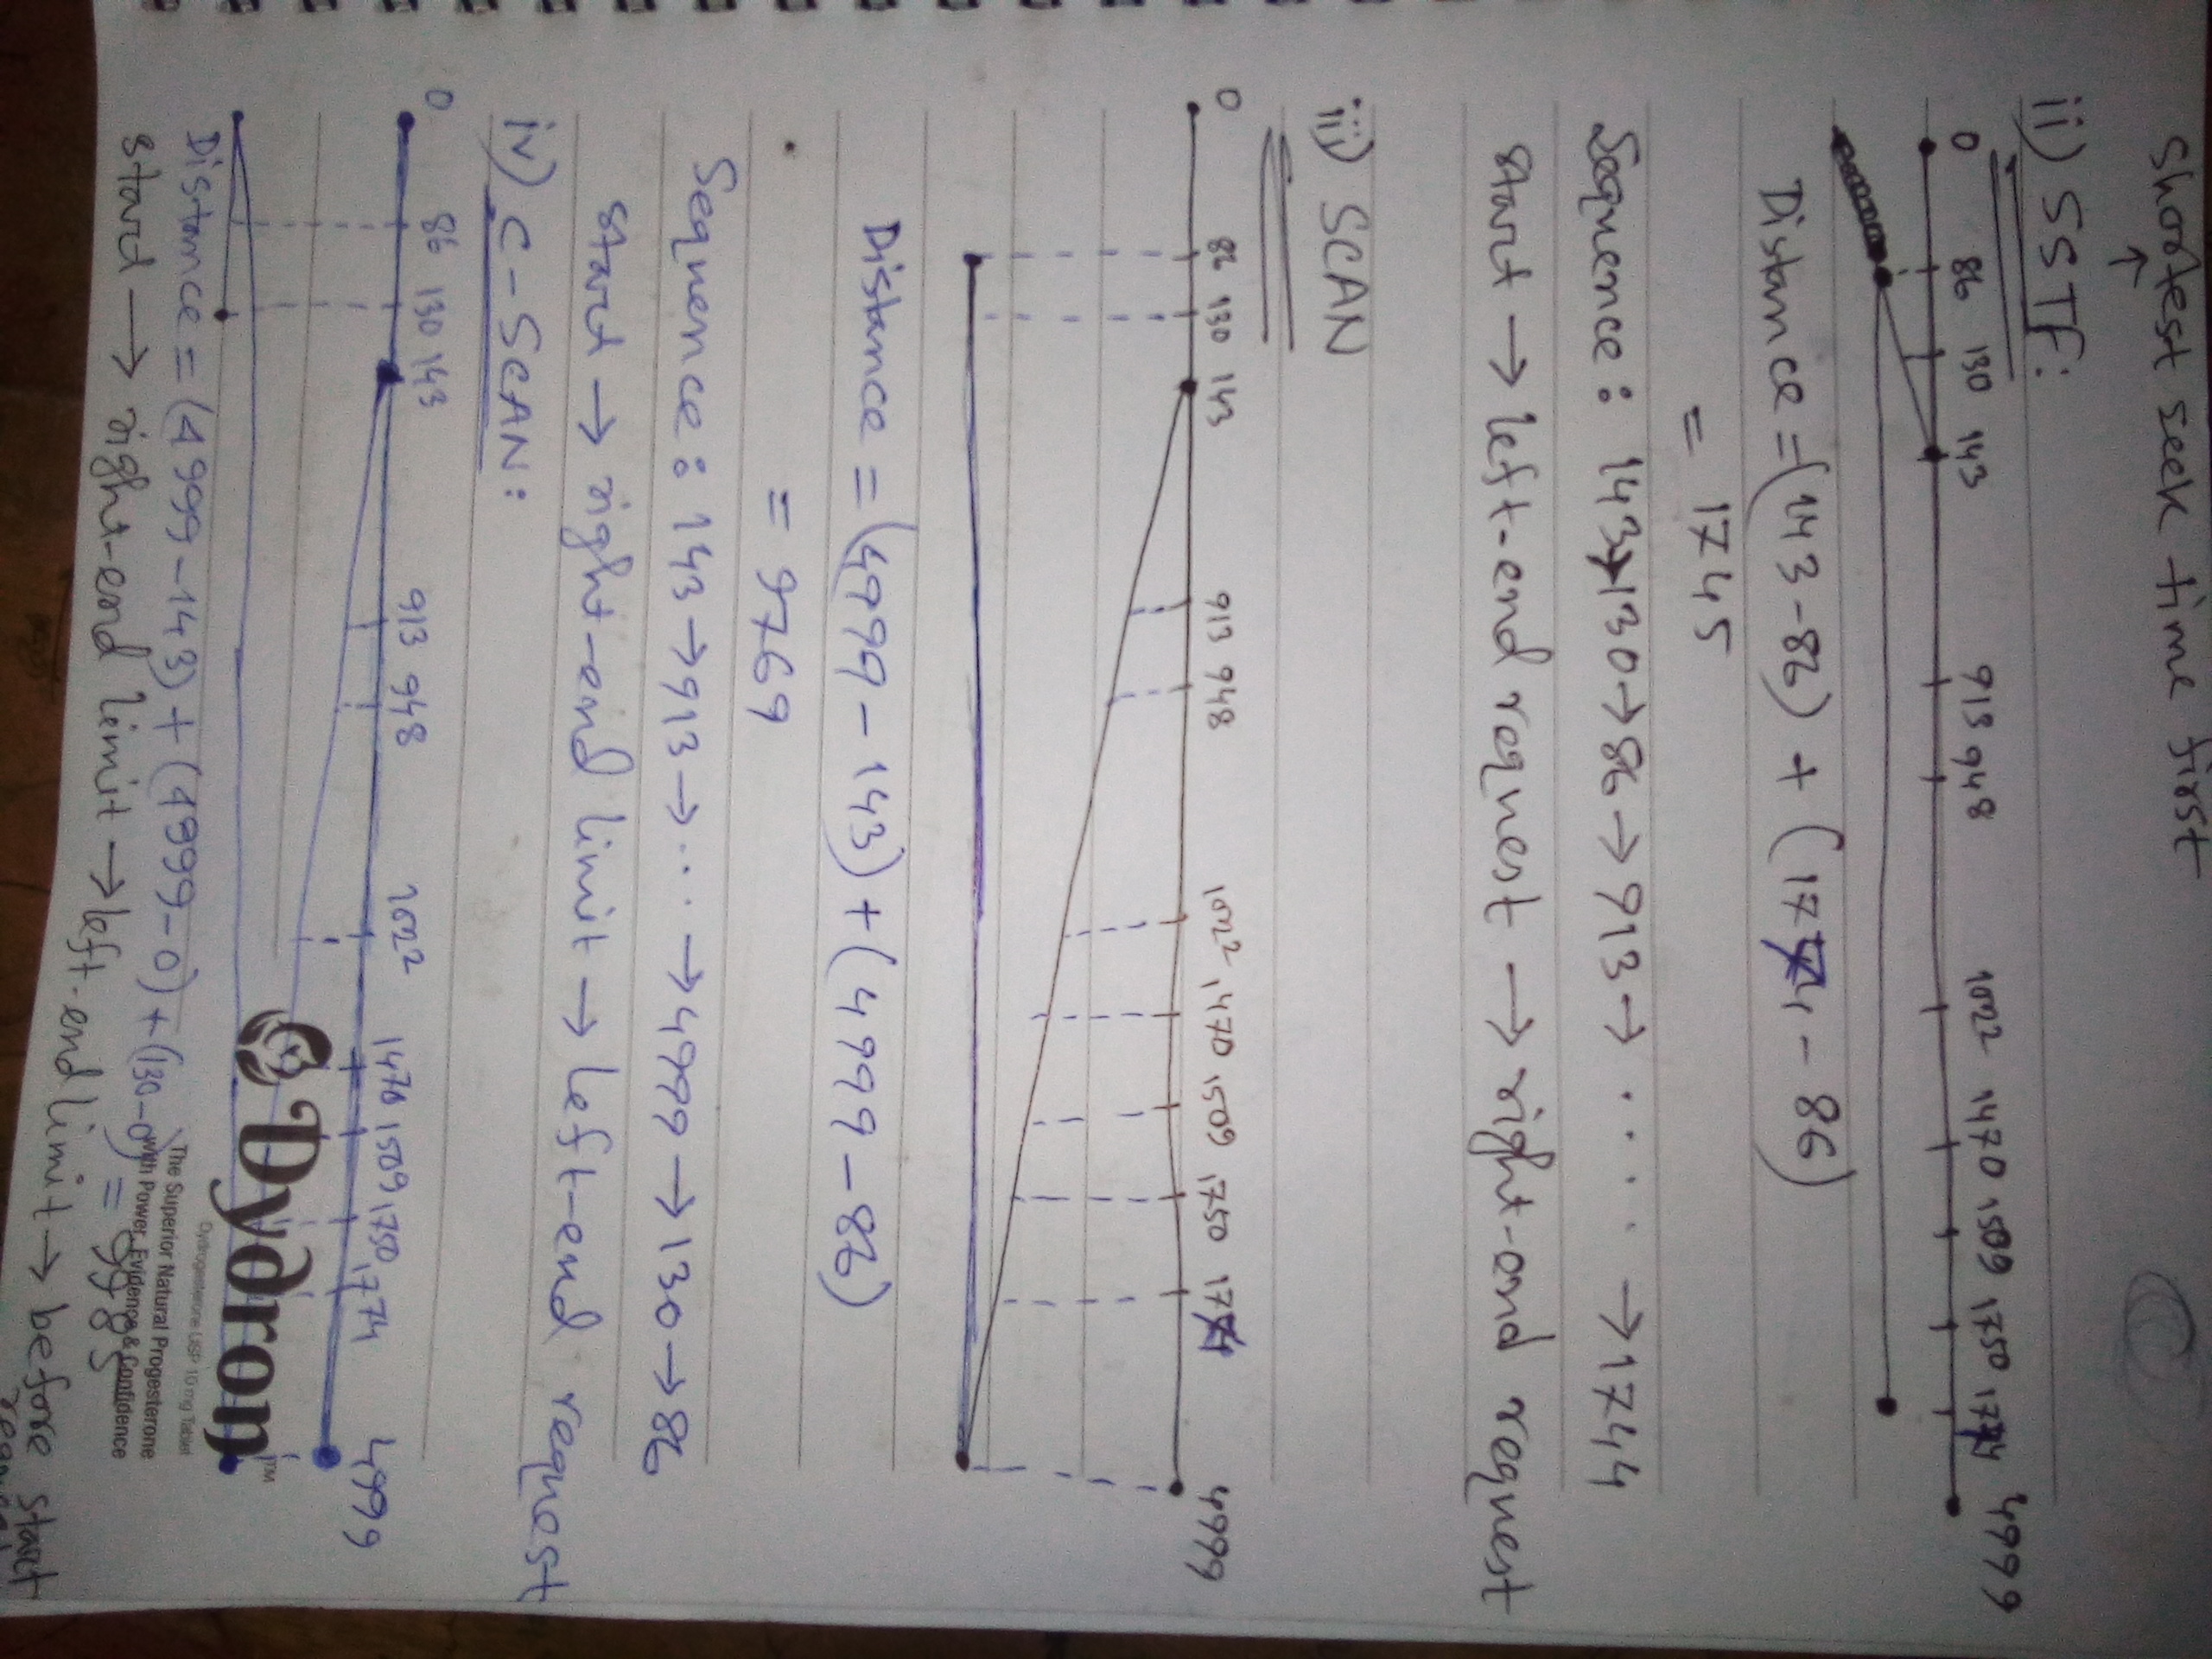 Shortest seek time first
↑
ii) SSTF:
0 86 130 143 913 948 1022 1470 1509 1750 1774 4999
Distance = (143-86) + (1774 - 86)
= 1745
Sequence: 143→130→86→913→ ..... →1744
Start → left-end request → right-end request
iii) SCAN
0 86 130 143 913 948 1022 1470 1509 1750 1774 4999
Distance = (4999-143)+(4999-86)
= 9769
Sequence: 143→913→... →4999→130→86
Start → right-end limit → left-end request
iv) C-SCAN:
0 86 130 143 913 948 1022 1470 1509 1750 1774 4999
Dydron™
Dydrogesterone USP 10 mg Tablet
The Superior Natural Progesterone
with Power, Evidence & Confidence
Distance = (4999-143) + (4999-0) + (130-0) = 9985
Start → right-end limit → left-end limit → before start